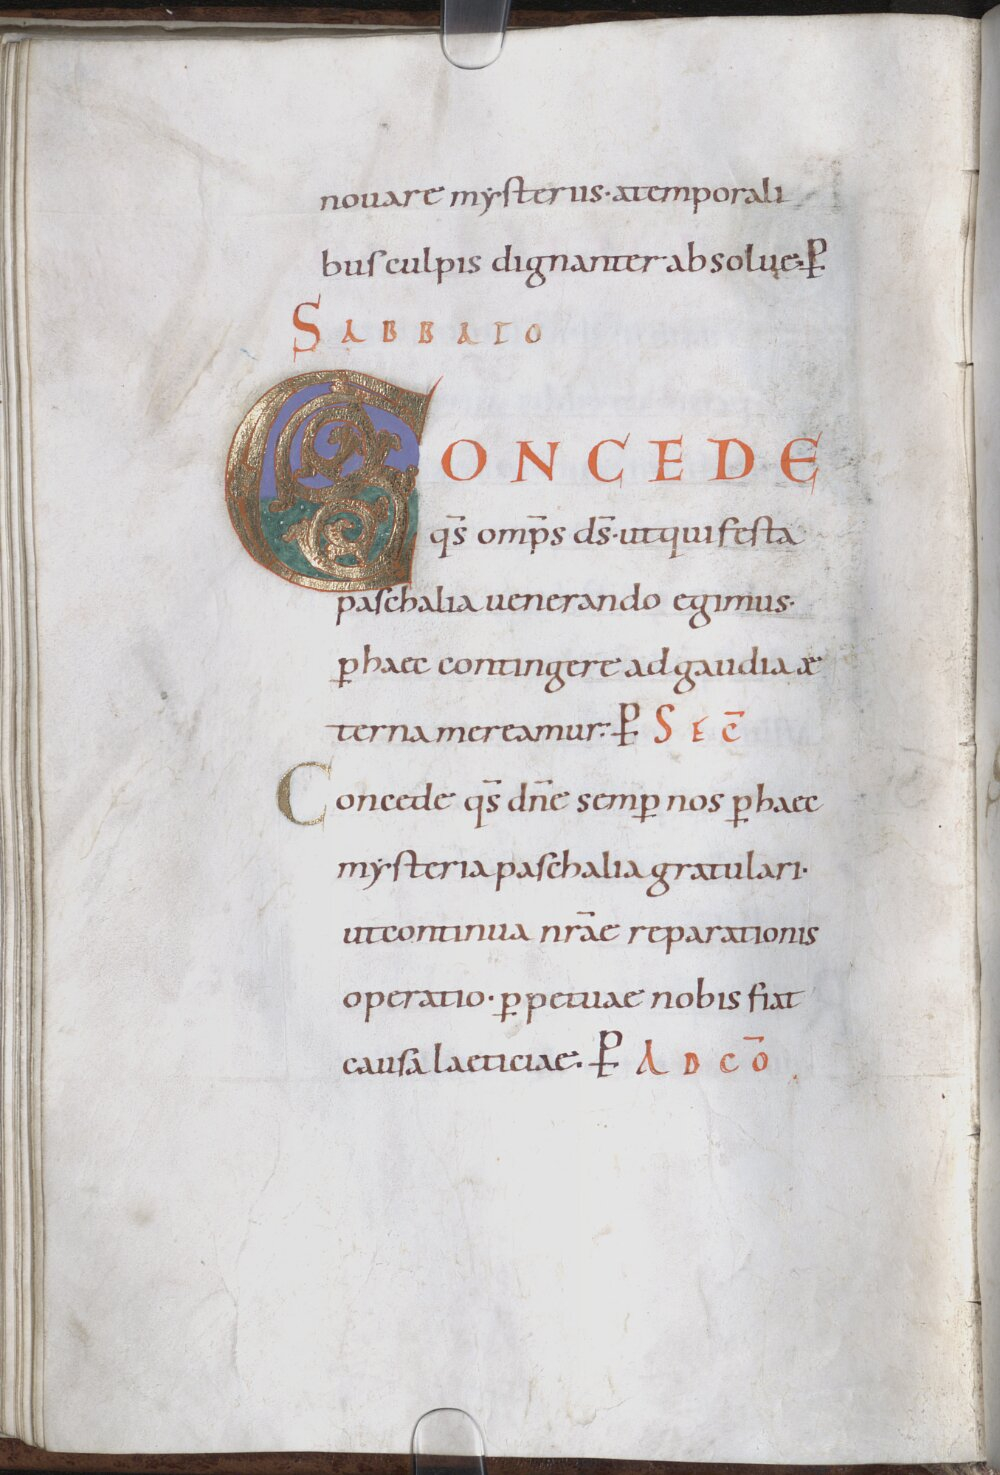 nouare mysteriis· atemporali
bus culpis dignanter absolue· P̱
SABBATO
CONCEDE
qs̄ omp̄s ds̄· utqui festa
paschalia uenerando egimus·
ꝑ haec contingere adgaudia æ
terna mereamur· P̱ SEC̄
Concede qs̄ dn̄e semꝑ nos ꝑ haec
mysteria paschalia gratulari·
utcontinua nrāe reparationis
operatio· ꝑpetuae nobis fiat
causa laeticiae· P̱ AD CŌ